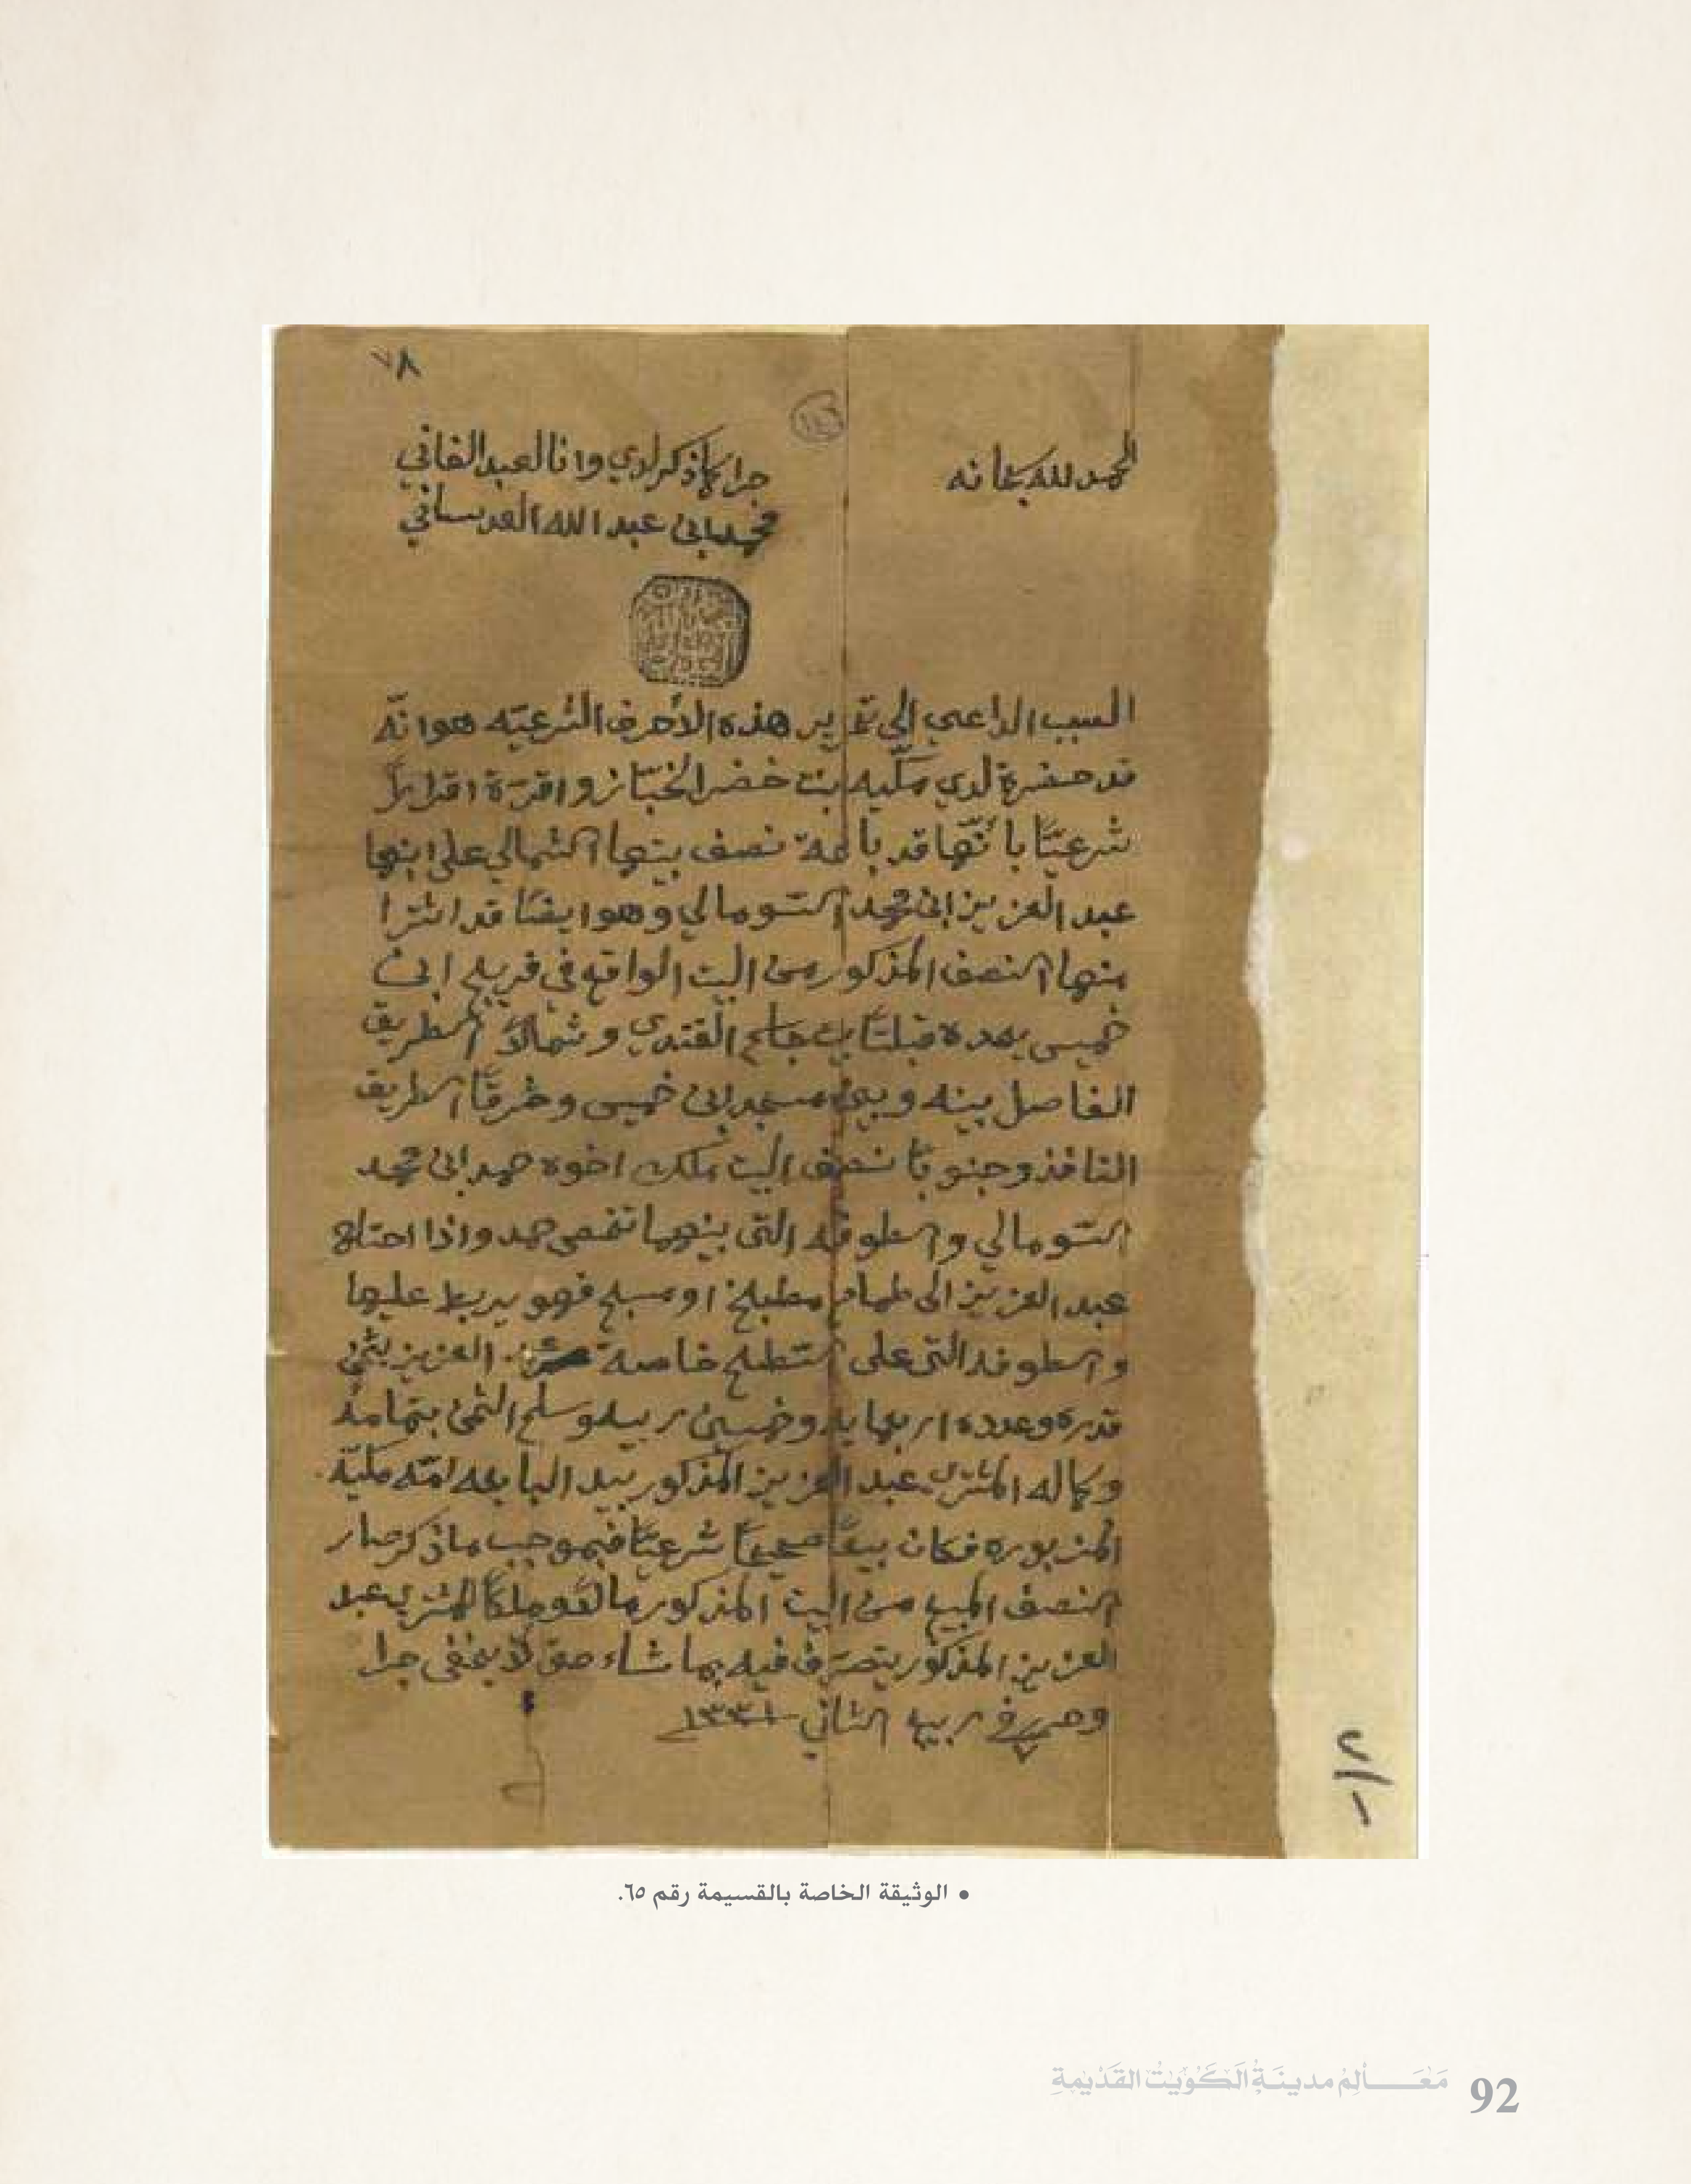 ٧٨
١٤٦
الحمد لله سبحانه
جرا كما ذكر لدي وانا العبد الفاني
محمد ابن عبد الله العدساني
السبب الداعي الى تحرير هذه الاحرف الشرعيّه هو انّه
قد حضرة لدي مكّيه بنت خضر الخبّاز واقرّة اقراراً
شرعيّاً بأنّها قد باعة نصف بيتها الشمالي على ابنها
عبد العزيز ابن محمد التومالي وهو ايضاً قد اشترا
منها النصف المذكور من البيت الواقع في فريج ابن
خميس يحده قبلتاً بيت جاسم الفندي وشمالاً الطريق
الفاصل بينه وبين مسجد ابن خميس وشرقاً الطريق
النافذ وجنوباً نصف البيت ملك اخوه حمد ابن محمد
التومالي والطوفه التى بينهما تخص حمد واذا احتاج
عبد العزيز الى طمام مطبخ او مسبح فهو يربط عليها
والطوفه التى على خاصة العزيز بثمن
قدره وعدده اربعمايه وخمسين ربيه وسلم الثمن بتمامه
وكماله المشتري عبد العزيز المذكور بيد البايعه امّه مكيّة
المزبوره فكان بيعاً صحيحاً شرعيّاً فبموجب ما ذكر صار
النصف المبيع من البيت المذكور مالاً وملكاً للمشتري عبد
العزيز المذكور يتصرّف فيه بما شاء حق لا يخفى جرا
وحرر في ربيع الثاني ١٣٣١
• الوثيقة الخاصة بالقسيمة رقم ٦٥.
مَعَالِمُ مدينَةُ الكُوَيْت القَدْيمة
92